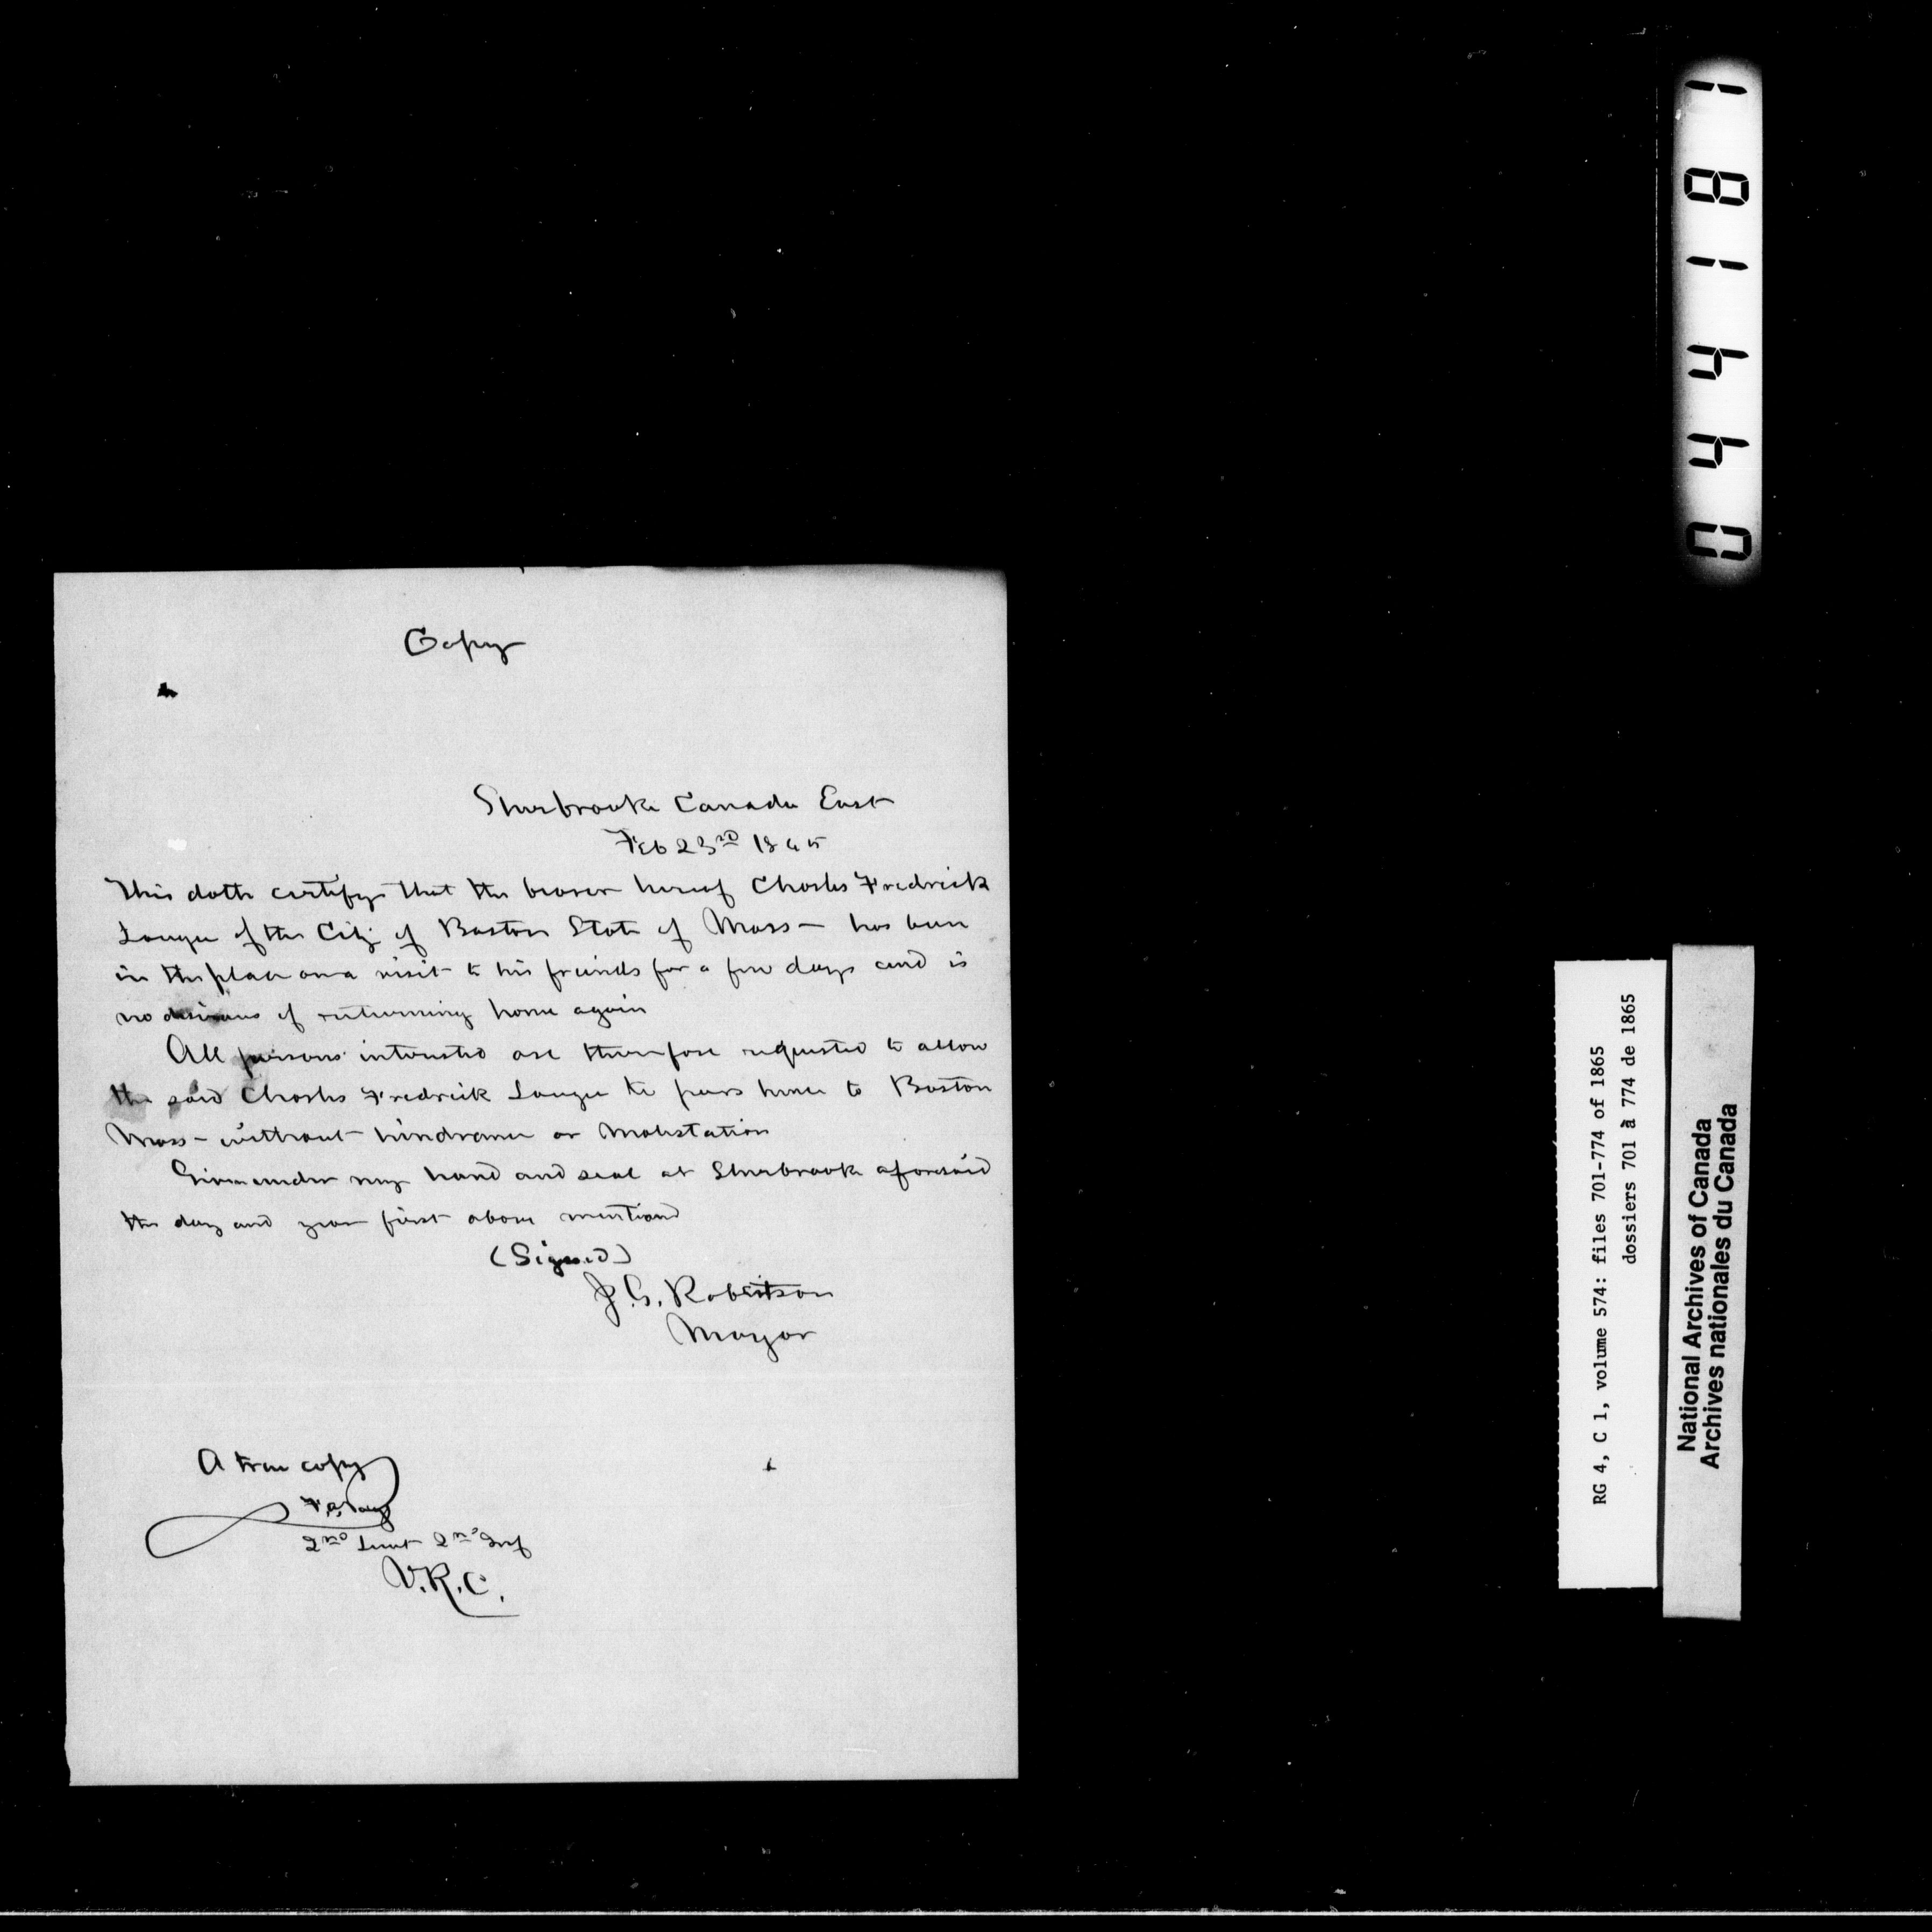 Copy
Sherbrooke Canada East
Feb 23rd 1865
This doth certify that the bearer hereof Charles Fredrick
Lange of the City of Boston State of Mass - has been
in this place on a visit to his friends for a few days and is
desirous of returning home again
All persons interested are therefore requested to allow
the said Charles Fredrick Lange to pass hence to Boston
Mass - without hindrance or Molestation
Given under my hand and seal at Sherbrooke aforesaid
the day and year first above mentioned
(Signed)
J.G. Robertson
Mayor
A true copy
2nd Lieut 2nd Inf
V.R.C.
181440
RG 4, C 1, volume 574: files 701-774 of 1865
dossiers 701 à 774 de 1865
National Archives of Canada
Archives nationales du Canada